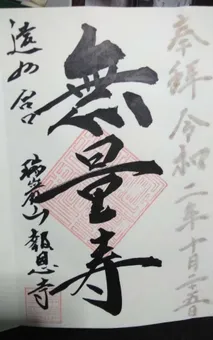 奉拝 令和二年十月二十五日
無量寿
遠州 舘山
瑞巌山 報恩寺